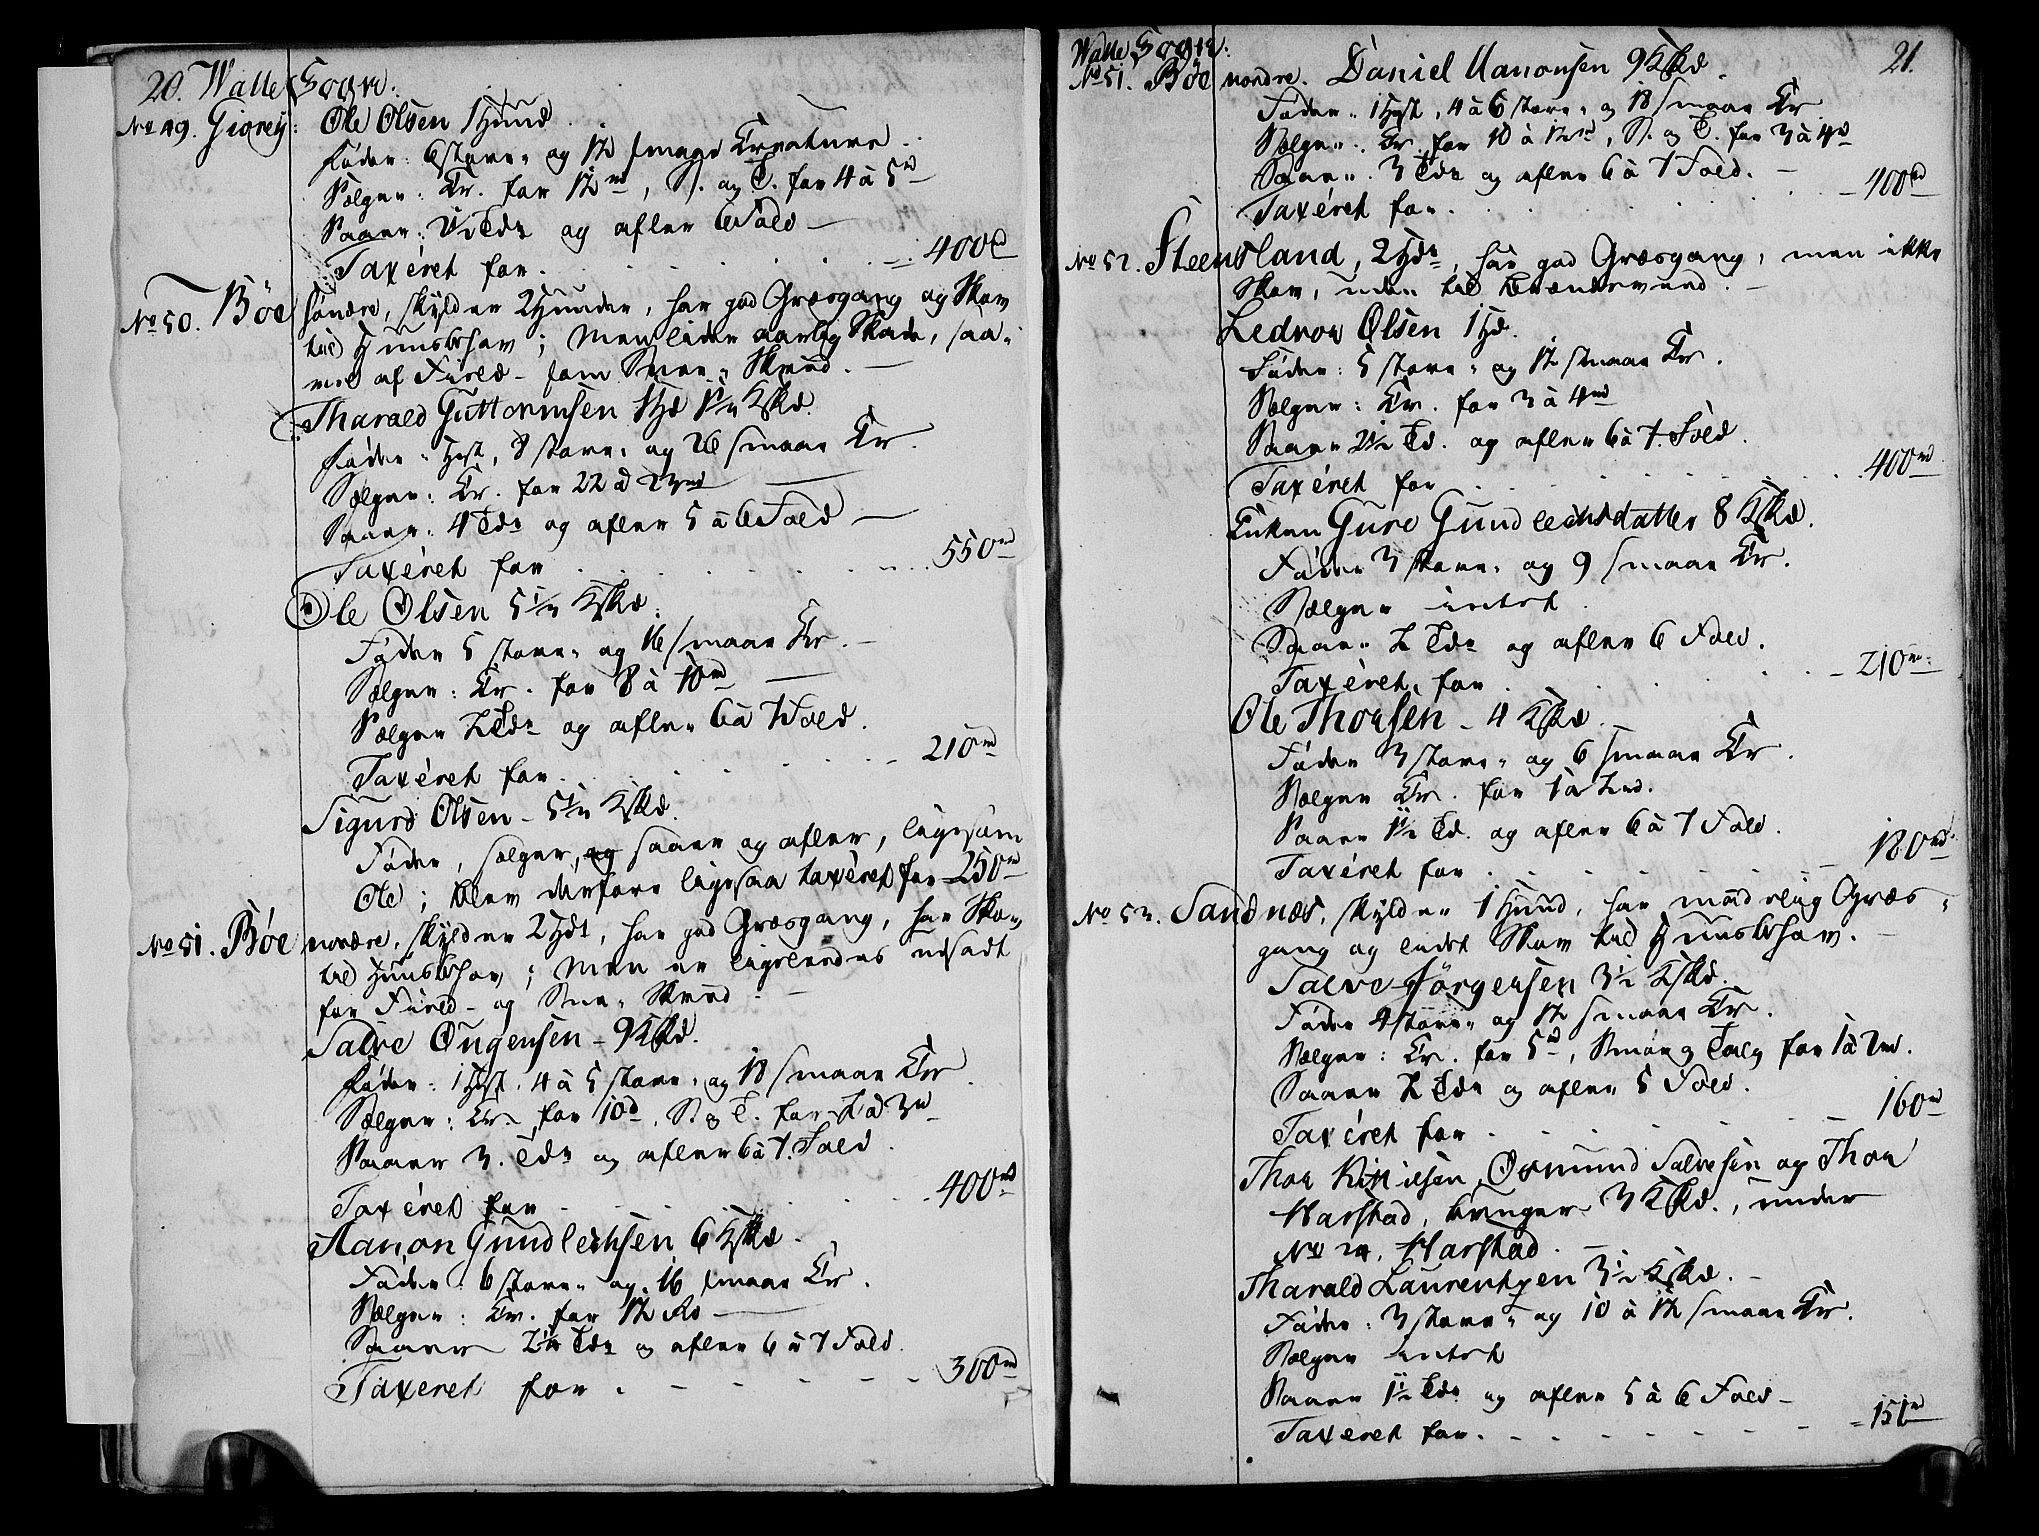 20. Walle Sogn.
No 49. Giorei: Ole Olsen 1 Hund
Føder: 6 store- og 12 smaae Creature.
Sælger: Cr. for 12 rd, S. og T. for 4 à 5 rd
Saaer: 2½ Tdr og avler 6 Fold
Taxeret for . . . 400 rd
No 50. Bøe søndre, skylder 2 Hunder, har god Græsgang og Skov
til Huusbehov; men lider aarlig Skade, saa-
vel af Field- som Snee-Skreed.
Tharald Guttormsen 1 Hd 1½ Kskd.
Føder 1 Hest, 8 store- og 26 smaae Cr.
Sælger: Cr. for 22 à 23 rd
Saaer: 4 Tdr og avler 5 à 6 Fold
Taxeret for . . . 550 rd
Ole Olsen 5½ Kskd.
Føder 5 store- og 16 smaae Cr.
Sælger: Cr. for 8 à 10 rd
Sælger 2 Tdr og avler 6 à 7 Fold.
Taxeret for . . . 210 rd
Sigurd Olsen - 5½ Kskd.
Føder, sælger, og saaer og avler, ligesom
Ole; blev derfore ligesaa taxeret for 250 rd
No 51. Bøe nordre, skylder 2 Hdr, har god Græsgang, har Skov
til Huusbehov; men er ligeledes udsadt
for Field- og Snee-Skreed.
Salve Ougensen - 9 Kskd.
Føder: 1 Hest, 4 à 5 store- og 18 smaae Cr.
Sælger: Cr. for 10 rd, S. og T. for 2 à 3 rd
Saaer 3. Tdr og avler 6 à 7. Fold.
Taxeret for . . . 400 rd
Aanon Gundlechsen 6 Kskd.
Føder: 6 store- og 16 smaae Cr.
Sælger: Cr. for 12 Rd
Saaer 2½ Tdr og avler 6 à 7 Fold.
Taxeret for . . . 300 rd
Walle Sogn: 21.
No 51. Bøe nordre. Daniel Aanonsen 9 Kskd.
Føder: 1 Hest, 4 à 6 store- og 18 smaae Cr
Sælger: Cr. for 10 à 12 rd, S. og T. for 3 à 4 rd
Saaer: 3 Tdr og avler 6 à 7 Fold.
Taxeret for . . . 400 rd
No 52. Steensland, 2 Hdr, har god Græsgang, men ikke
Skov, uden til Brændeveed.
Ledvor Olsen 1 Hd.
Føder: 5 store- og 12 smaae Cr.
Sælger: Cr. for 3 à 4 rd
Saaer 2½ Td. og avler 6 à 7. Fold.
Taxeret for . . . 400 rd
Enken Gure Gundlechsdatter 8 Kskd.
Føder 3 store- og 9 smaae Cr.
Sælger intet
Saaer 2 Tdr og avler 6 Fold.
Taxeret for . . . 210 rd
Ole Thorsen - 4 Kskd.
Føder 3 store- og 6 smaae Cr.
Sælger Cr. for 1 à 2 rd.
Saaer 1½ Td. og avler 6 à 7 Fold.
Taxeret for . . . 180 rd
No 53. Sandnæs, skylder 1 Hund, har maadelig Græs-
gang og lidet Skov til Huusbehov.
Salve Jörgensen 3½ Kskd.
Føder 4 store- og 12 smaae Cr.
Sælger: Cr. for 5 rd, Smør og Talg for 1 à 2 rd.
Saaer 2 Tdr og avler 5 Fold.
Taxeret for . . . 160 rd
Thor Osmund Salvesen og Thor
Harstad, bruger 3 Kskd., under
No Harstad.
Tharald Laurentzen 3½ Kskd.
Føder: 3 store- og 10 à 12 smaae Cr.
Sælger intet
Saaer 1½ Tdr og avler 5 à 6 Fold
Taxeret for . . . 151 rd